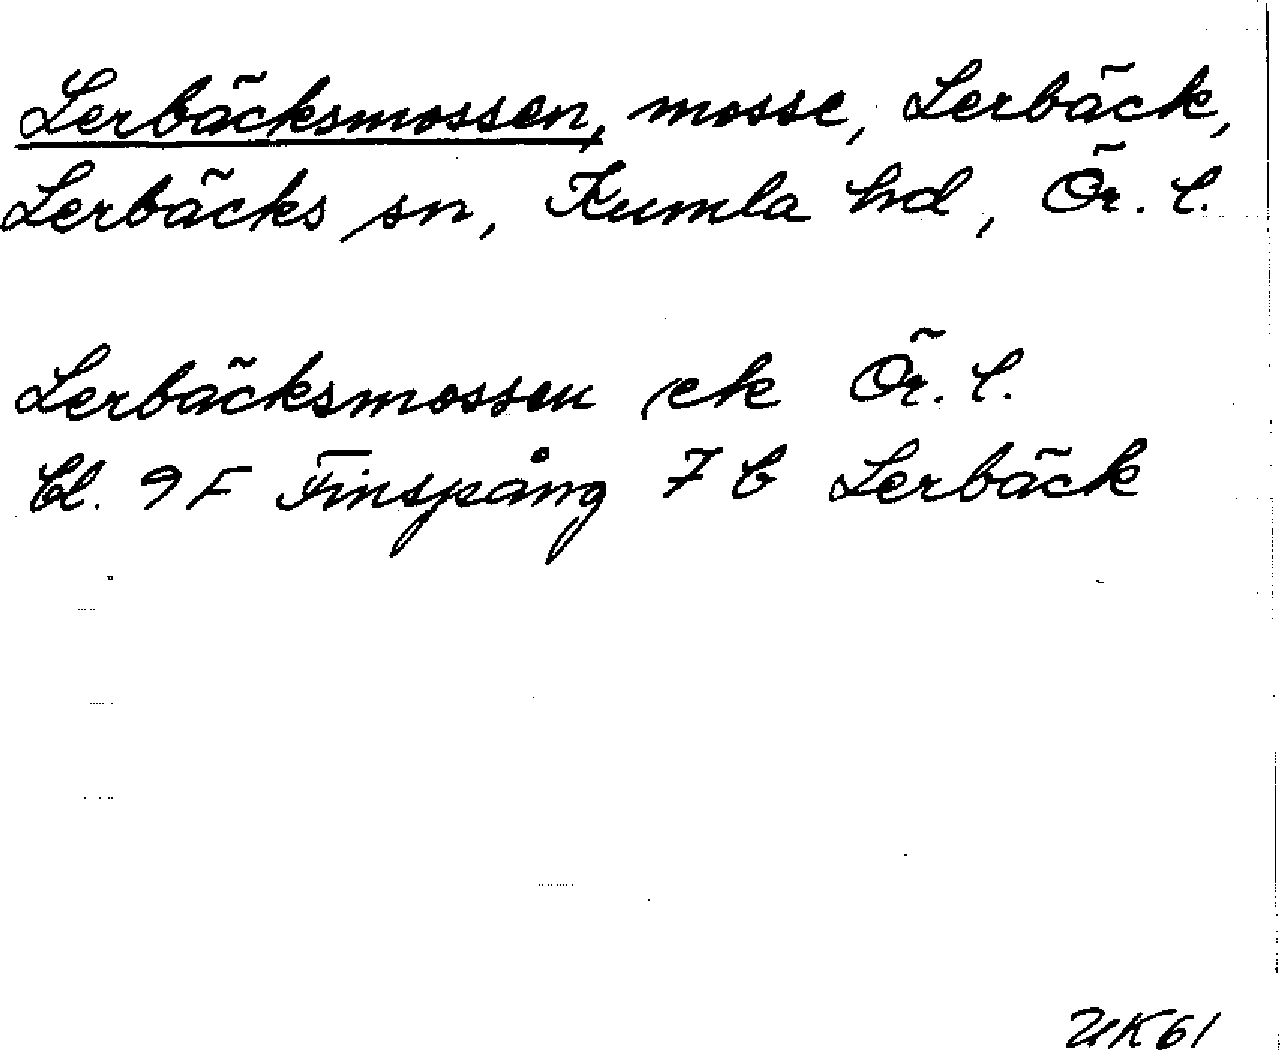 Lerbäcksmossen, mosse, Lerbäck,
Lerbäcks sn, Kumla hd, Ör. l.
Lerbäcksmossen ek Ör. l.
bl. 9 F Finspång 7 b Lerbäck
UK61